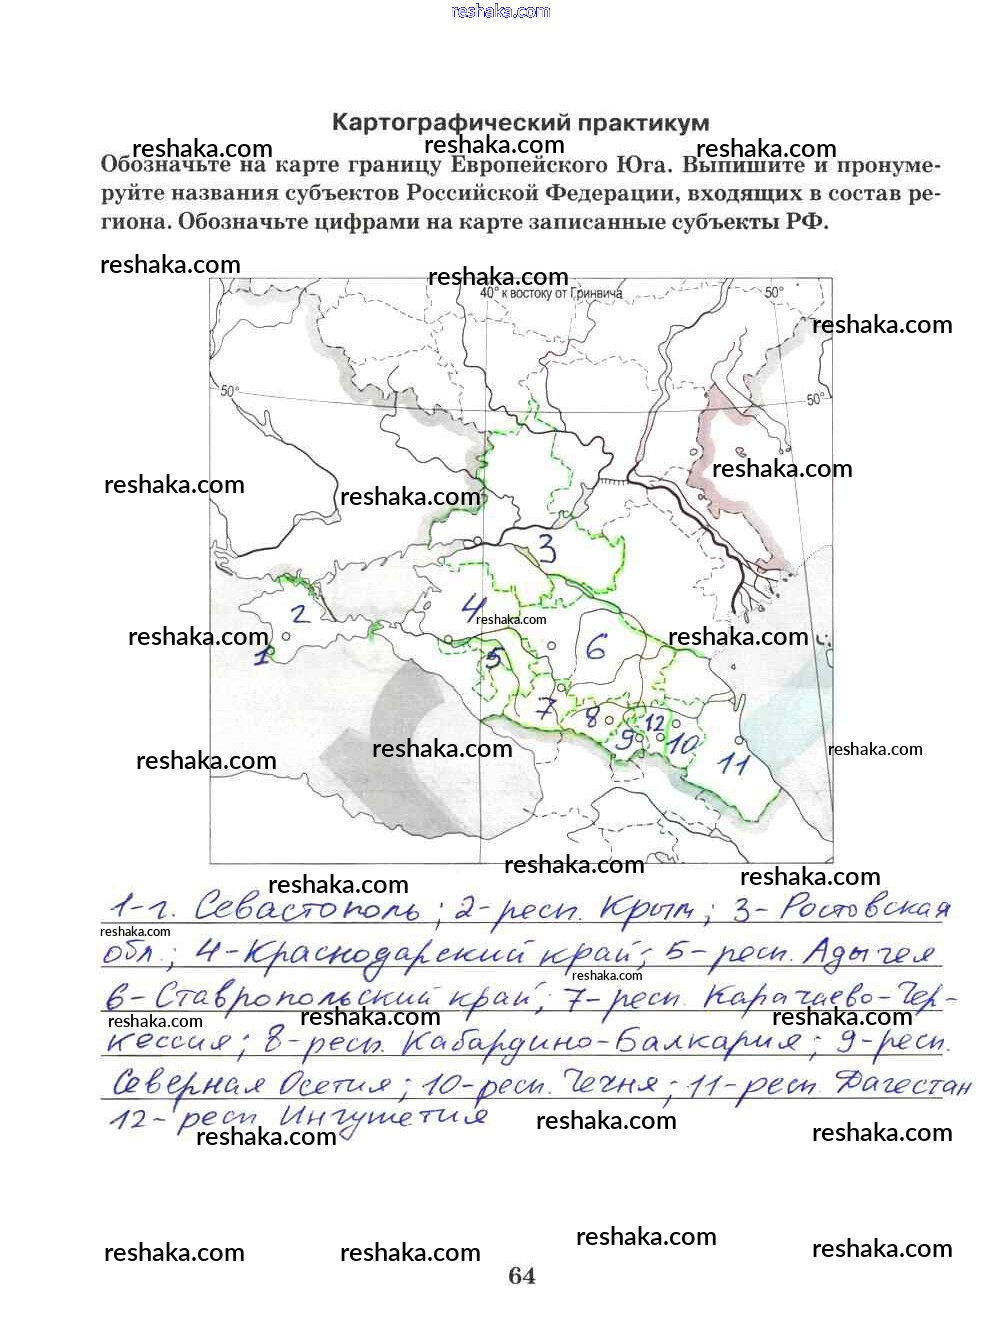 reshaka.com
Картографический практикум
reshaka.com reshaka.com reshaka.com
Обозначьте на карте границу Европейского Юга. Выпишите и пронуме-
руйте названия субъектов Российской Федерации, входящих в состав ре-
гиона. Обозначьте цифрами на карте записанные субъекты РФ.
reshaka.com reshaka.com
40° к востоку от Гринвича 50°
reshaka.com
50° 50°
reshaka.com reshaka.com reshaka.com
3
2 4
reshaka.com
reshaka.com reshaka.com
1 5 6
7 8 12
9 10 11
reshaka.com reshaka.com reshaka.com
reshaka.com
reshaka.com reshaka.com
1-г. Севастополь; 2-респ. Крым; 3-Ростовская
reshaka.com
обл.; 4-Краснодарский край; 5-респ. Адыгея
reshaka.com
6-Ставропольский край; 7-респ. Карачаево-Чер-
reshaka.com reshaka.com reshaka.com
кессия; 8-респ. Кабардино-Балкария; 9-респ.
Северная Осетия; 10-респ. Чечня; 11-респ. Дагестан
12-респ Ингушетия
reshaka.com reshaka.com reshaka.com
reshaka.com reshaka.com reshaka.com reshaka.com
64